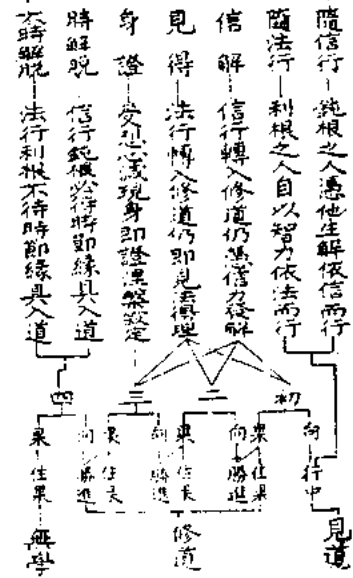 隨信行 鈍根之人憑他生解依信而行
隨法行 利根之人自以智力依法而行
信解 信行轉入修道仍憑信力發解
見得 法行轉入修道仍即見法得理
身證 受想心滅現身即證涅槃寂定
時解脫 信行鈍根必待時節緣具入道
不時解脫 法行利根不待時節緣具入道
初
二
三
四
向 行中
果 住果
勝進
向 勝進
果 住果
向 勝進
果 住果
向 勝進
果 住果
見道
修道
無學